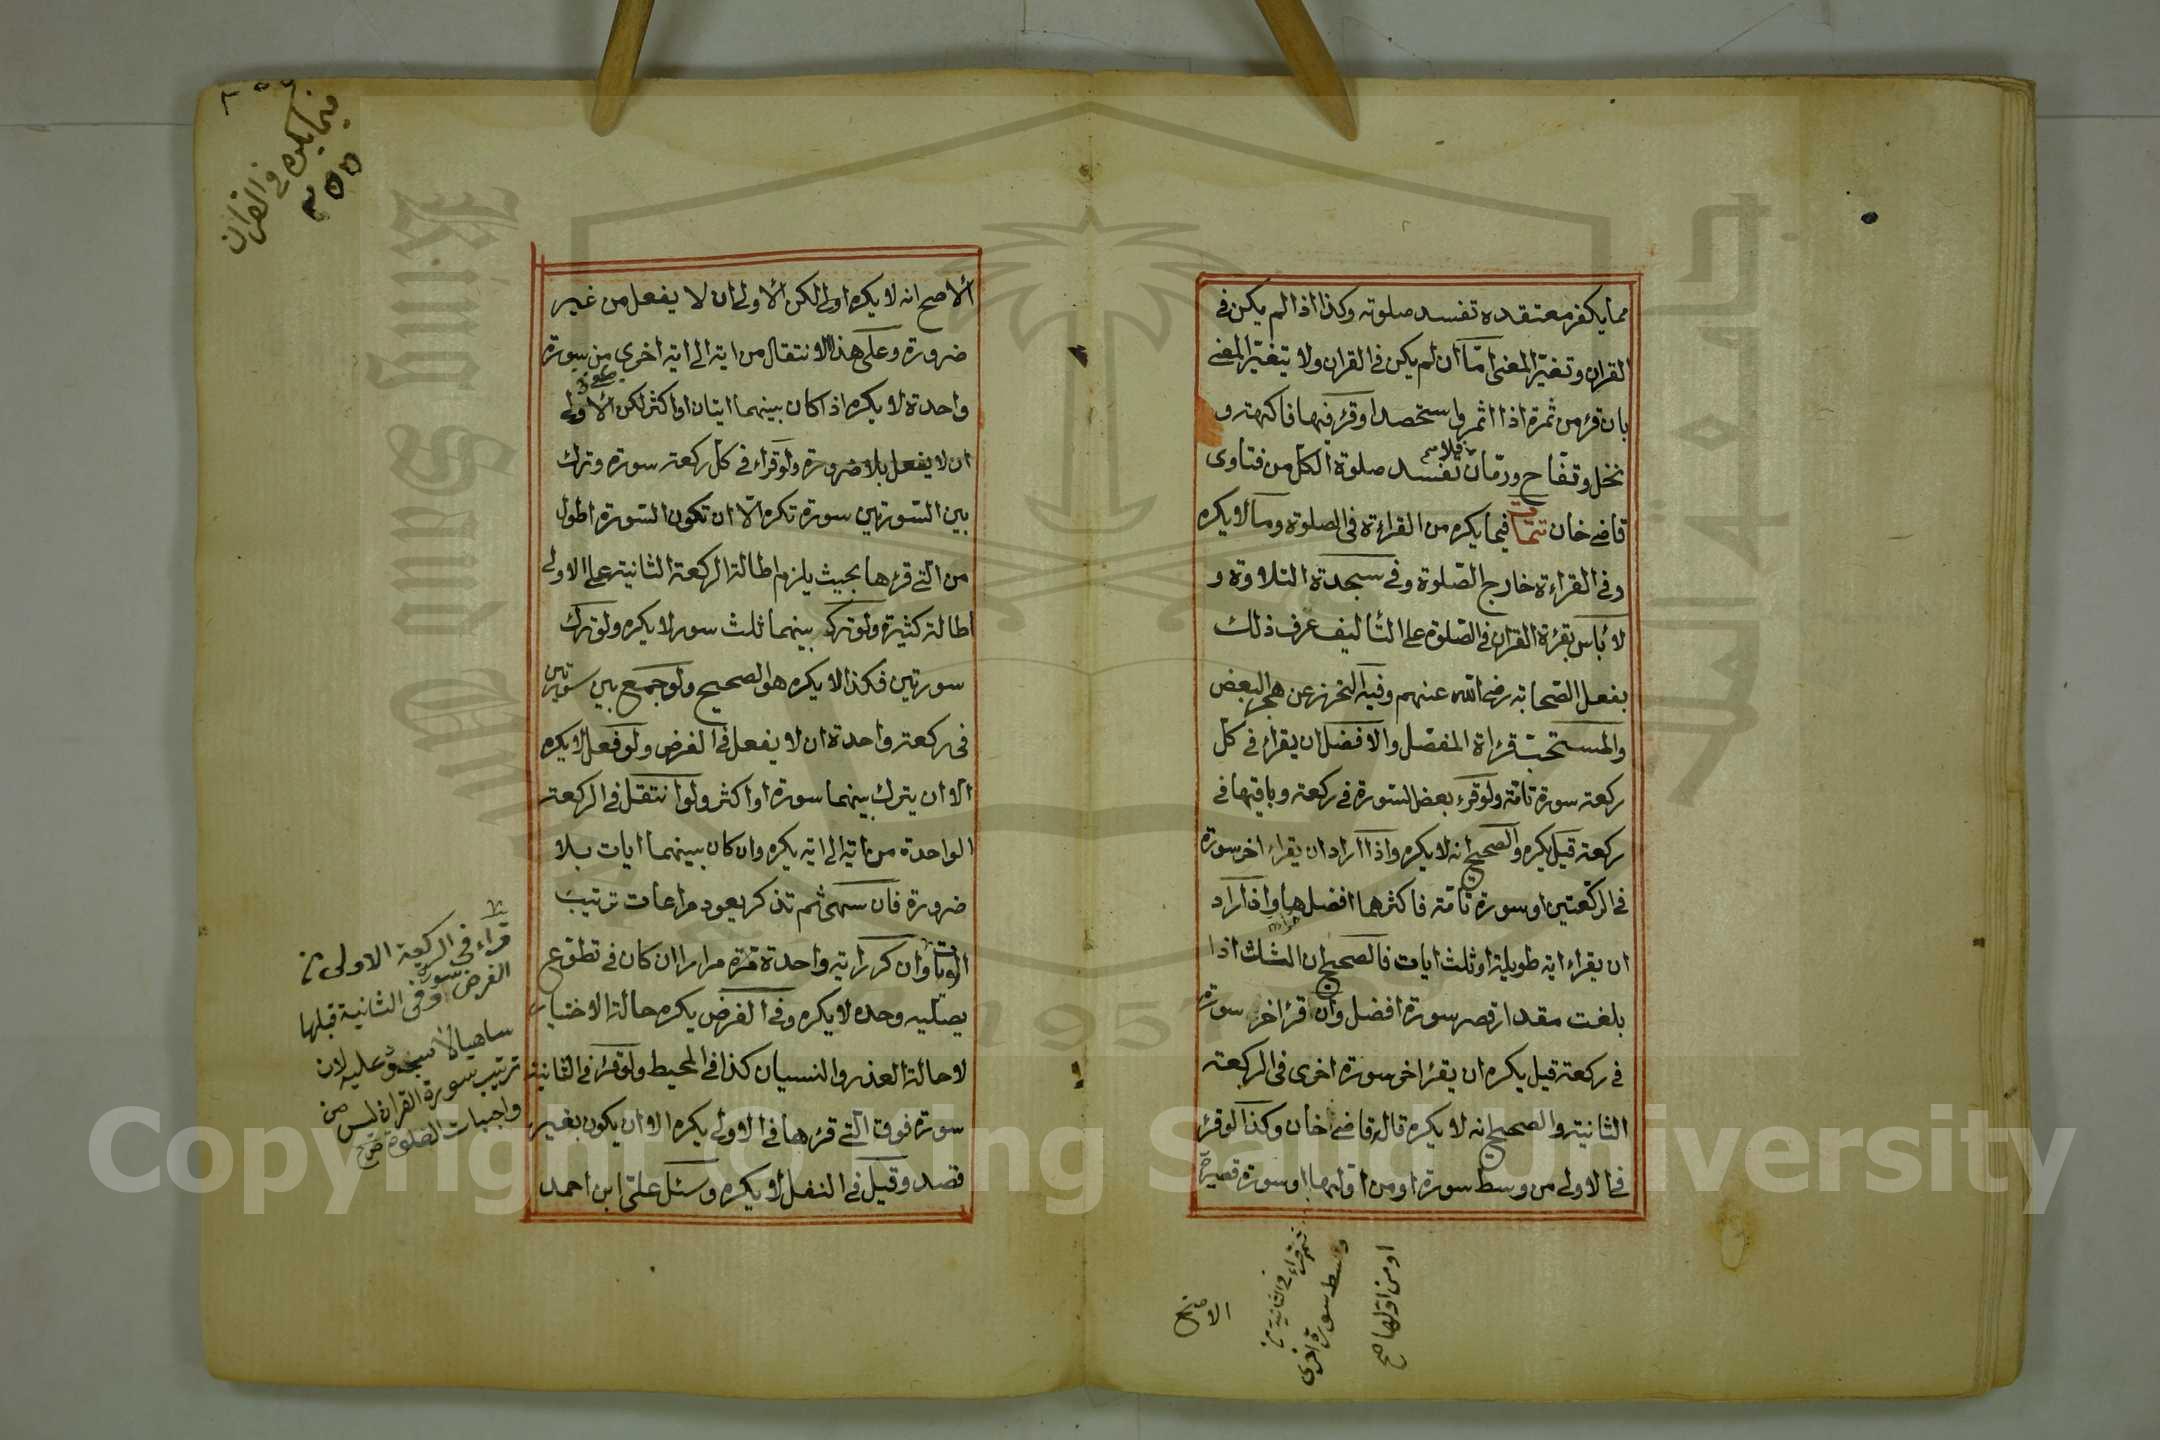 مما يكفر معتقده تفسد صلوته وكذا اذا لم يكن في
القران وتغيّر المعنى امّا ان لم يكن في القران ولا يتغيّر المعنى
بان قرء من ثمره اذا اثمر واستحصد او قرء فيها فاكهة و
نخل وتفّاح ورمّان فلا تفسد صلوة الكل من فتاوى
قاضي خان تتمات فيما يكره من القراءة في الصلوة وما لا يكره
وفي القراءة خارج الصّلوة وفي سجدة التلاوة و
لا بأس بقرءة القران في الصّلوة على التأليف عرف ذلك
بفعل الصّحابة رضي الله عنهم وفيه التحرز عن هجر البعض
والمستحبّ قراة المفصّل والافضل ان يقراء في كل
ركعة سورة تامّة ولو قرء بعض السّورة في ركعة وباقيها في
ركعة قيل يكره والصحيح انه لا يكره واذا اراد ان يقراء اخر سورة
في الركعتين او سورة تامّة فاكثرهما افضلهما واذا اراد
ان يقراء اية طويلة او ثلث ايات فالصحيح ان الثلث اذا
بلغت مقدار قصر سورة افضل وان قرء اخر سورة
في ركعة قيل يكره ان يقرء اخر سورة اخرى في الركعة
الثانية والصحيح انه لا يكره قاله قاضي خان وكذا لو قرء
في الاولى من وسط سورة او من اوّلها او سورة قصيرة
ثم قراء في الثانية من
وسط سورة اخرى
او من اوّلها صح
الاصح
فيما يكره في القران
٢٥٥
الاصح انه لا يكره اولى لكن الاولى ان لا يفعل من غير
ضرورة وعلى هذا الانتقال من اية الى اية اخرى من سورة
واحدة لا يكره اذا كان بينهما ايتان او اكثر لكن الاولى
ان لا يفعل بلا ضرورة ولو قراء في كل ركعة سورة وترك
بين السّورتين سورة تكره الّا ان تكون السّورة اطول
من الّتي قرءها بحيث يلزم اطالة الركعة الثانية على الاولى
اطالة كثيرة ولو ترك بينهما ثلث سور لا يكره ولو ترك
سورتين فكذا لا يكره هو الصحيح ولو جمع بين سورتين
في ركعة واحدة ان لا يفعل في الفرض ولو فعل لا يكره
الا ان يترك بينهما سورة او اكثر ولو انتقل في الركعة
الواحدة من اية الى اية يكره وان كان بينهما ايات بلا
ضرورة فان سهى ثم تذكر يعود مراعات ترتيب
الايات وان كرر اية واحدة مرارا ان كان في تطوّع
يصلّيه وحده لا يكره وفي الفرض يكره حالة الاختيار
لا حالة العذر والنسيان كذا في المحيط ولو قرء في الثانية
سورة فوق الّتي قرءها في الاولى يكره الا ان يكون بغير
قصد وقيل في النفل لا يكره وسئل علىّ ابن احمد
قراء في الركعة الاولى من
الفرض سورة وفي الثانية قبلها
ساهيا لا سجود عليه لان
ترتيب سورة القران ليس من
واجبات الصلوة صح